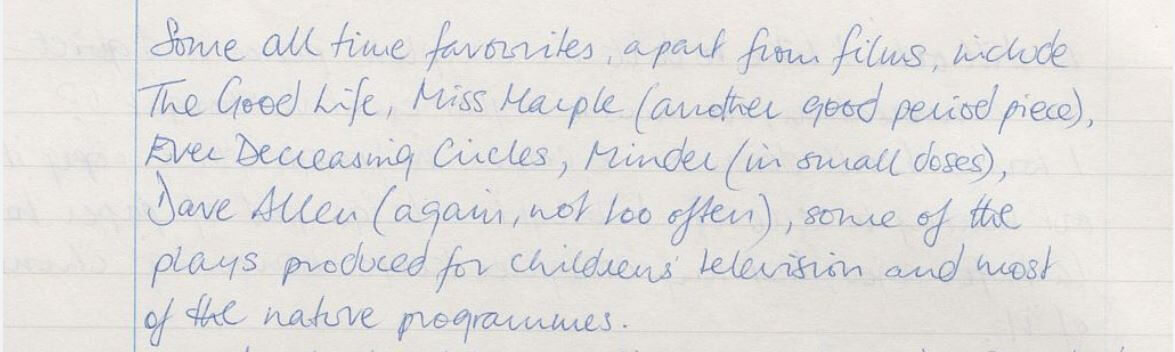 Some all time favourites, apart from films, include
The Good Life, Miss Marple (another good period piece),
Ever Decreasing Circles, Minder (in small doses),
Dave Allen (again, not too often), some of the
plays produced for childrens' television and most
of the nature programmes.